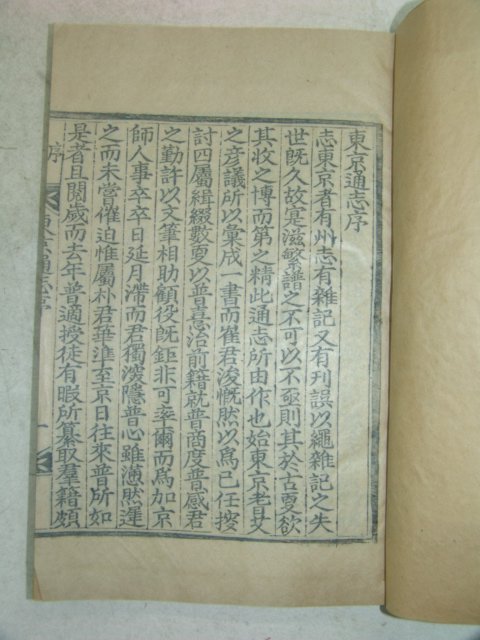 東京通志序
志東京者有州志有雜記又有刊誤以繩雜記之失
世既久故寔滋繁譜之不可以不亟則其於古更欲
其收之博而第之精此通志所由作也始東京老艾
之彦議所以彙成一書而崔君浚慨然以爲己任按
討四屬緝綴數更以普嘉治前籍就普商度普感君
之勤許以文筆相助顧役既鉅非可率爾而爲加京
師人事卒卒日延月滯而君獨深隱普心雖薄然遲
之而未嘗催迫惟屬朴君華進至京日往來普所如
是者且閱歲而去年普適授徒有暇所纂取羣籍頗
序
東京通志序
一